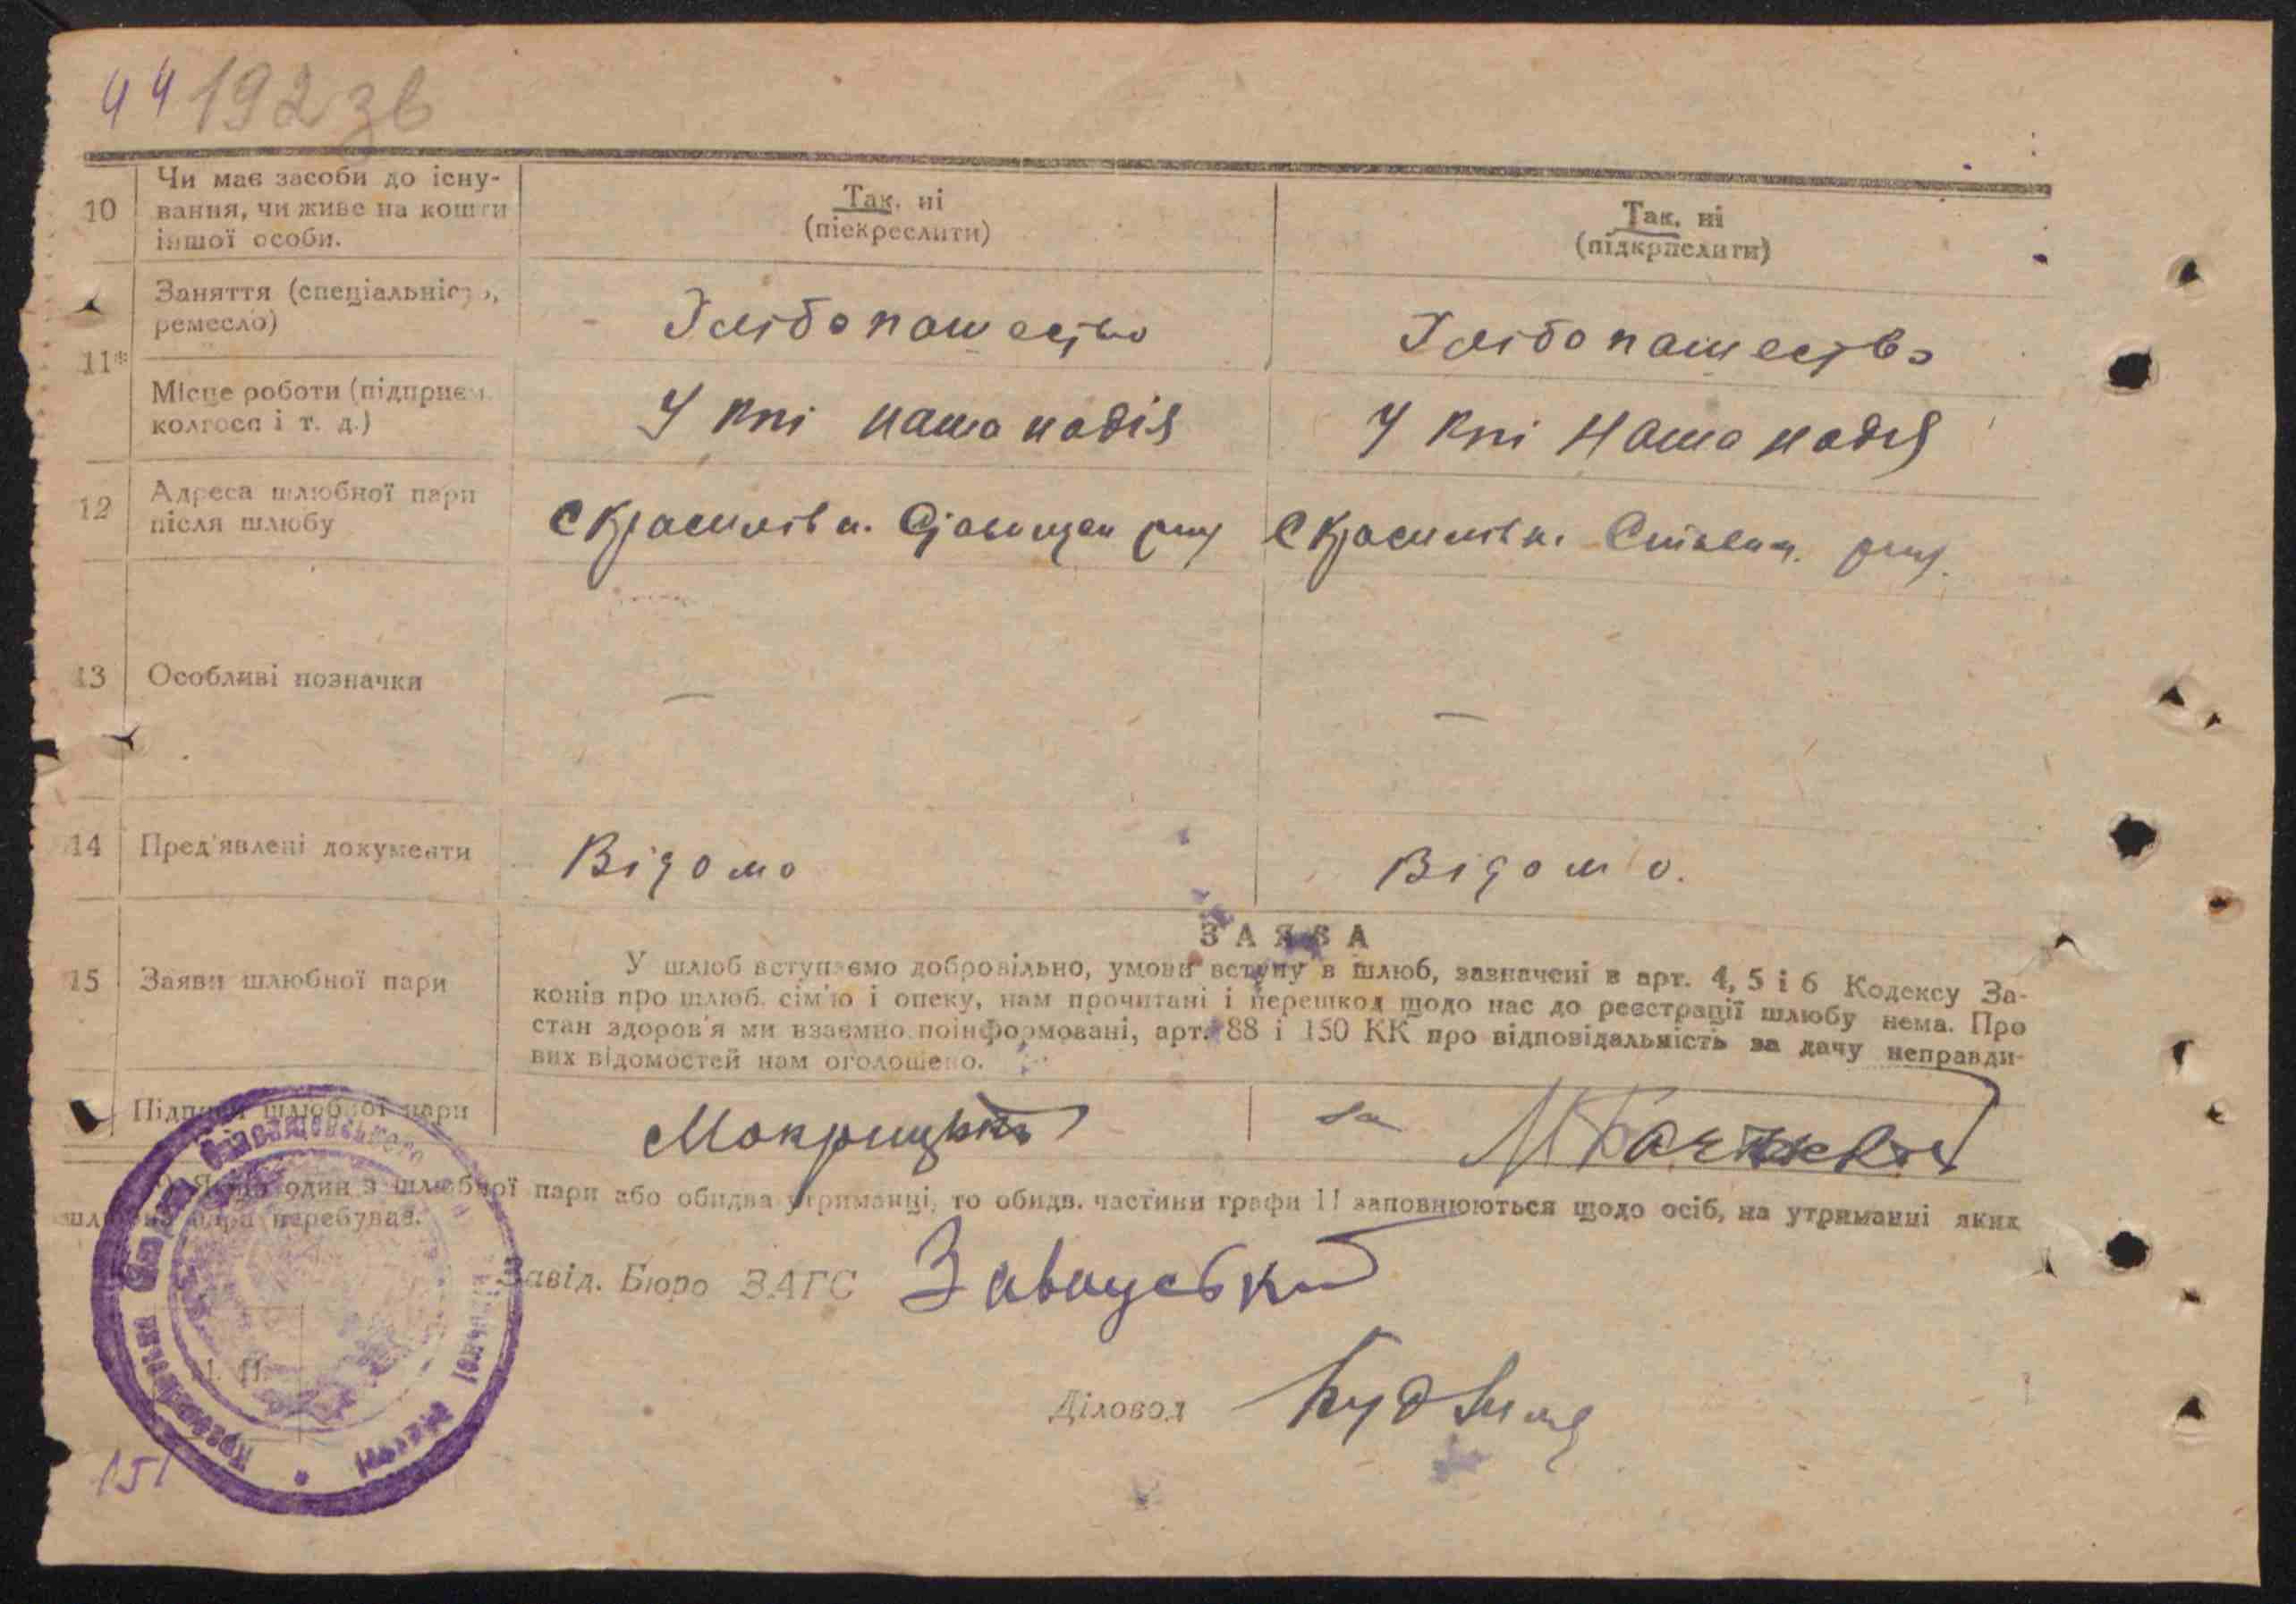 44 192 зв
10
Чи має засоби до існу-
вання, чи живе на кошти
іншої особи.
Так, ні
(піекреслити)
Так, ні
(підкрислити)
11*
Заняття (спеціальність,
ремесло)
Хлібопашество
Хлібопашество
Місце роботи (підприєм.
колгосп і т. д.)
У кпі наша надія
У кпі Наша надія
12
Адреса шлюбної пари
після шлюбу
с Красилівка. Ставищен рну
с Красилівка Ставищ. рну.
13
Особливі позначки
—
—
14
Пред'явлені документи
Відомо
Відомо.
15
Заяви шлюбної пари
ЗАЯВА
У шлюб вступаємо добровільно, умови вступу в шлюб, зазначені в арт. 4, 5 і 6 Кодексу За-
конів про шлюб. сім'ю і опеку, нам прочитані і перешкод щодо нас до реєстрації шлюбу нема. Про
стан здоров'я ми взаємно поінформовані, арт. 88 і 150 КК про відповідальність за дачу неправди-
вих відомостей нам оголошено.
Підписи шлюбної пари
Мокрицький
за
*) Якщо один з шлюбної пари або обидва утриманці, то обидв. частини графи 11 заповнюються щодо осіб, на утриманні яких
шлюбна пара перебуває.
Завід. Бюро ЗАГС
Завацський
Діловод
Ставищенського
сільської
151